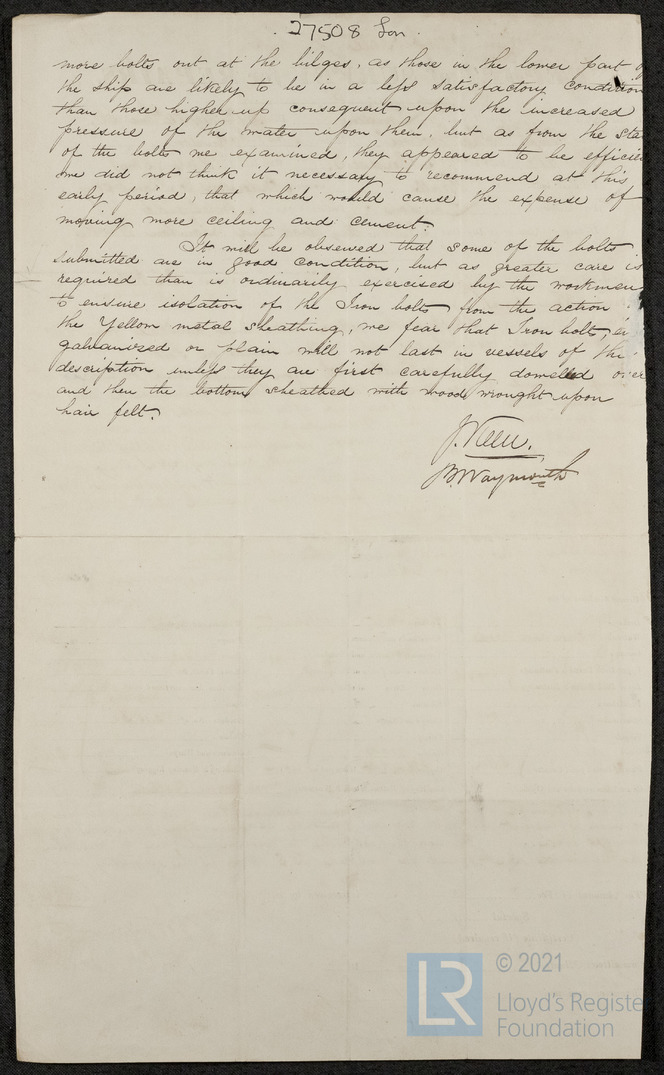 27508 Lon
more bolts out at the bilges, as those in the lower part of
the ship are likely to be in a less satisfactory condition
than those higher up consequent upon the increased
pressure of the water upon them, but as from the sta
of the bolts we examined, they appeared to be efficie
we did not think it necessary to recommend at this
early period, that which would cause the expense of
moving more ceiling and cement.
It will be observed that some of the bolts
submitted are in good condition, but as greater care is
required than is ordinarily exercised by the workmen
to ensure isolation of the Iron bolts from the action
the Yellow metal sheathing, we fear that Iron bolts, ei
galvanized or plain will not last in vessels of the
description unless they are first carefully dowelled over
and then the bottom sheathed with wood wrought upon
hair felt.
B. Waymouth
LR
© 2021
Lloyd's Registe
Foundation